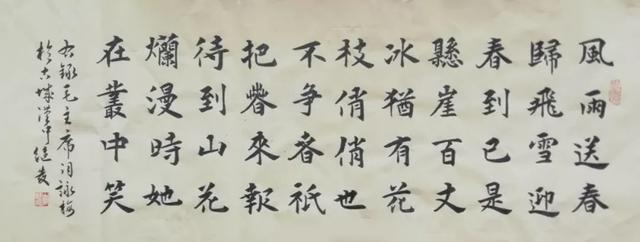 風雨送春
歸飛雪迎
春到已是
懸崖百丈
冰猶有花
枝俏俏也
不争春祇
把春來報
待到山花
爛漫時她
在叢中笑
右録毛主席词詠梅
於古城漢中